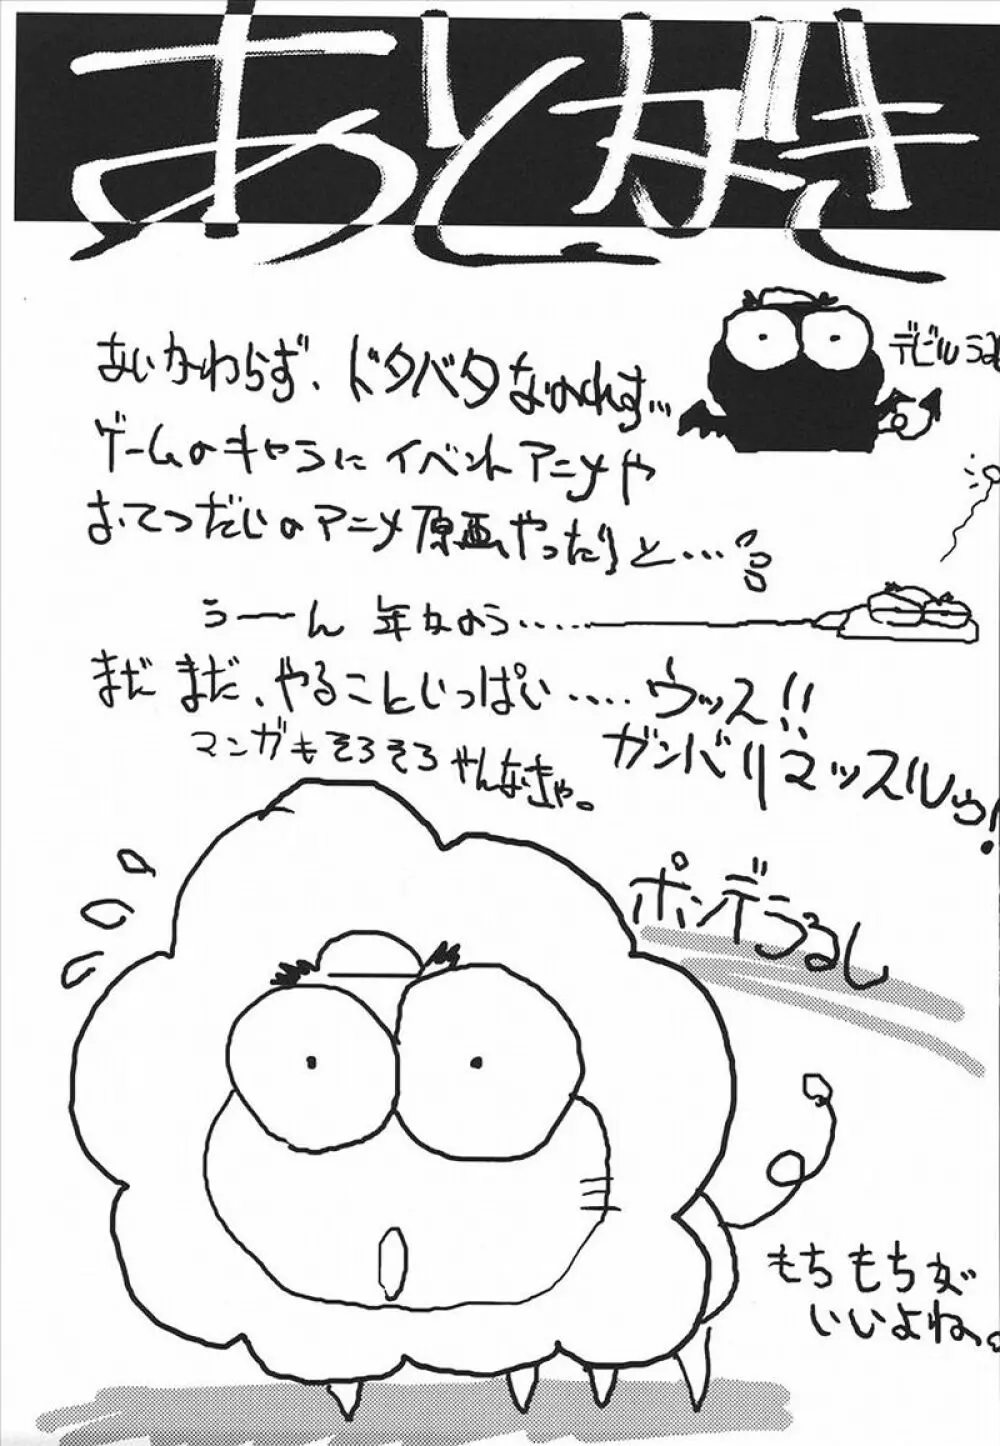 あとがき
あいかわらず、ドタバタなのれす…
デビルうる
ゲームのキャラにイベントアニメや
おてつだいのアニメ原画やったりと…
うーーん 年かのう……
まだまだ、やることいっぱい…… ウッス!!
マンガもそろそろやんなきゃ。
ガンバリマッスルゥ!
ポンデうるし
もちもちが
いいよね。